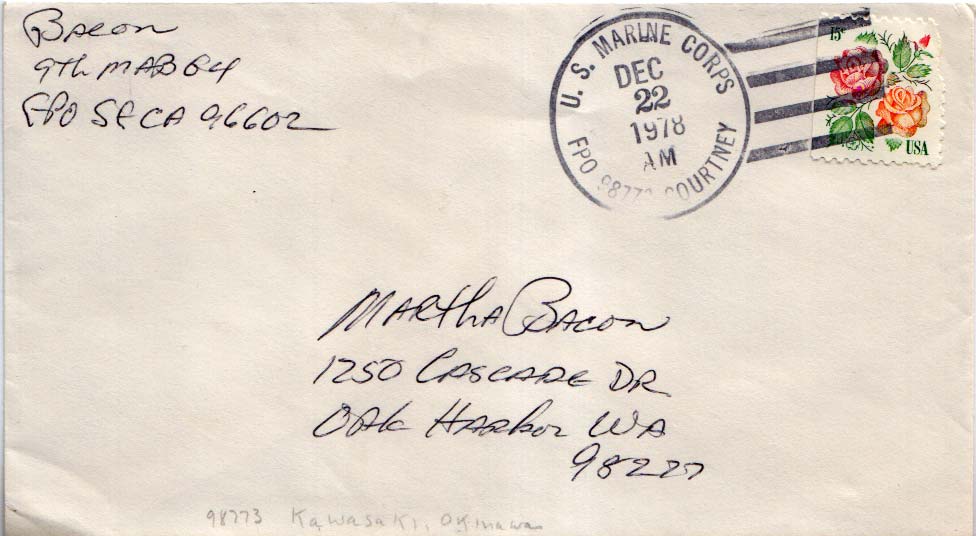 Bacon
9th MAB G4
FPO SF CA 96602
U. S. MARINE CORPS
DEC
22
1978
AM
FPO 98773 COURTNEY
15c
USA
Martha Bacon
1250 Cascade Dr
Oak Harbor WA
98277
98773 Kawasaki, Okinawa